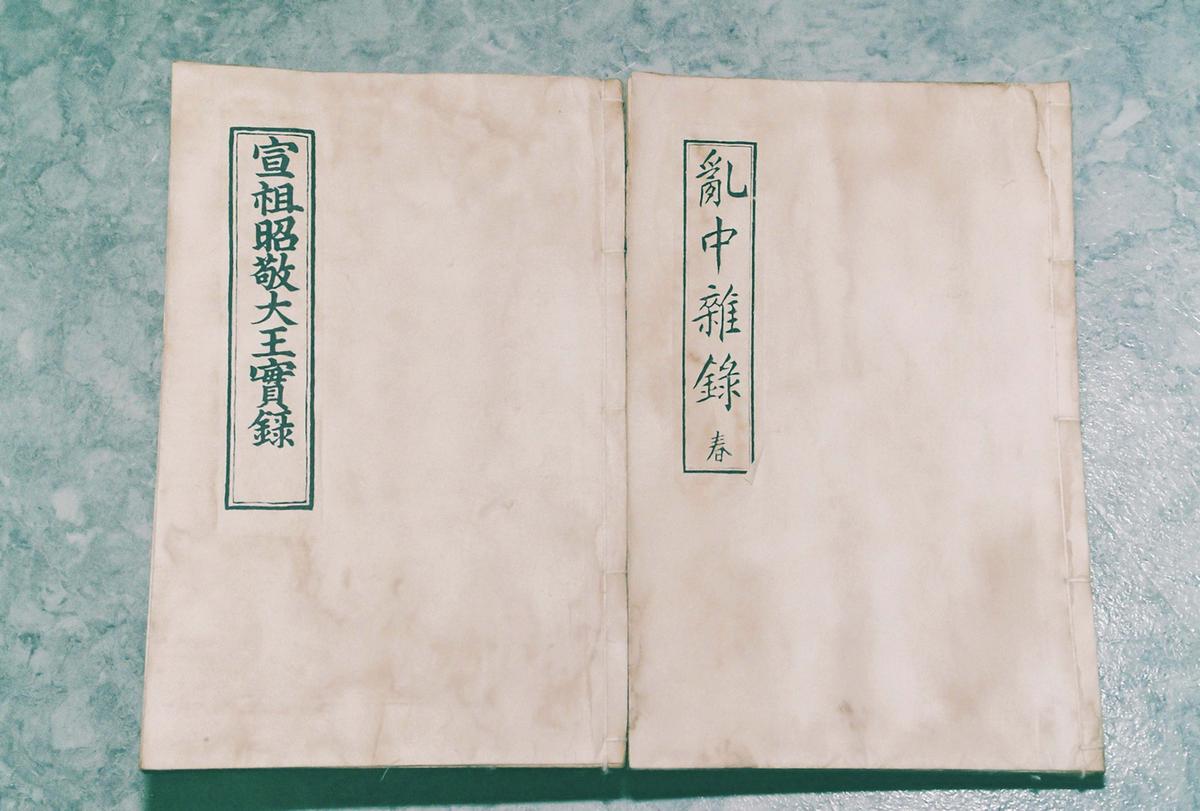 宣祖昭敬大王實録
亂中雜錄 春